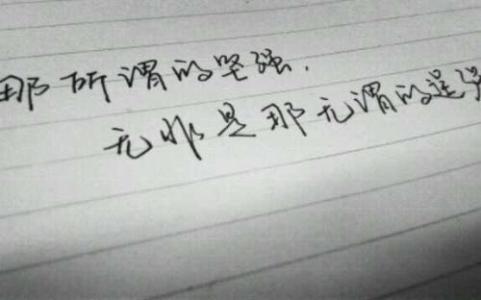 那所谓的坚强.
无非是那无谓的逞强